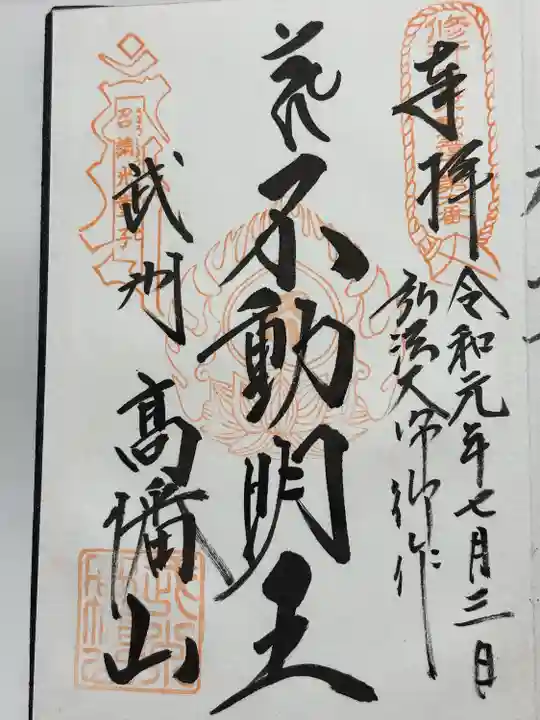 奉拝
令和元年七月三日
弘法大師御作
不動明王
武州
高幡山